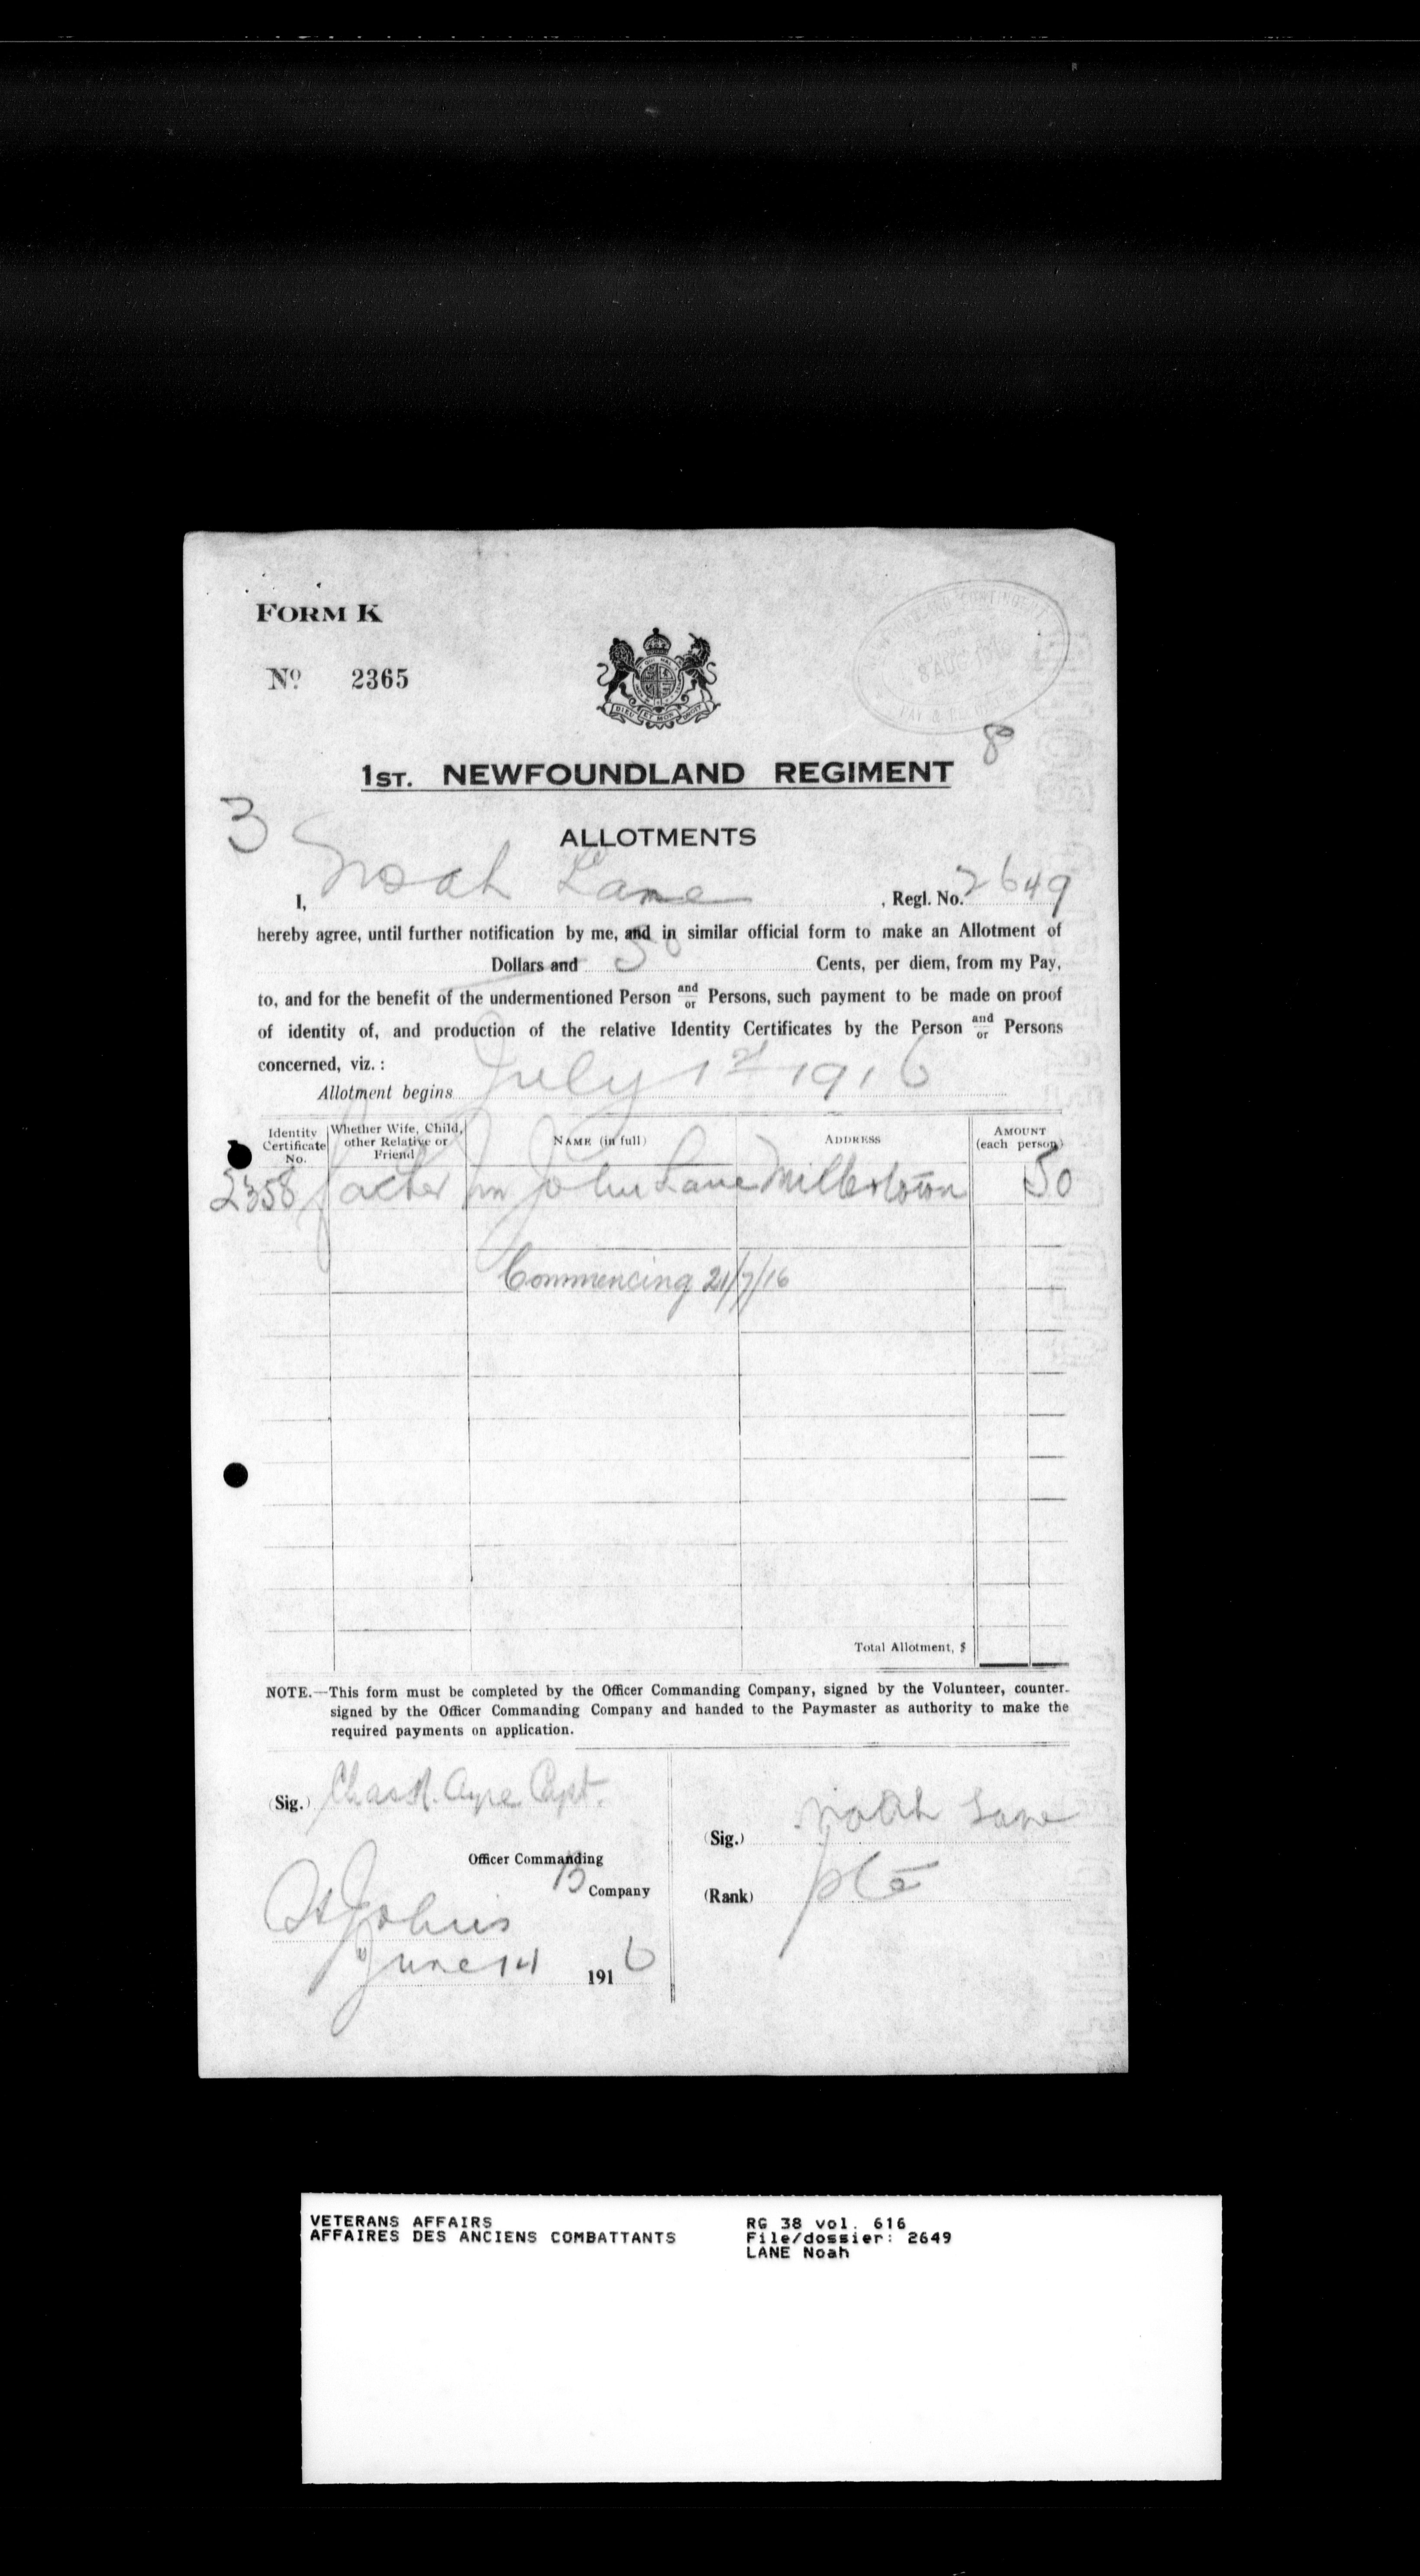 FORM K
No. 2365
8 AUG 1916
8
1ST. NEWFOUNDLAND REGIMENT
3
ALLOTMENTS
I, Noah Lane, Regl. No. 2649
hereby agree, until further notification by me, and in similar official form to make an Allotment of
Dollars and 50 Cents, per diem, from my Pay,
to, and for the benefit of the undermentioned Person and/or Persons, such payment to be made on proof
of identity of, and production of the relative Identity Certificates by the Person and/or Persons
concerned, viz. :
Allotment begins July 1st 1916
Identity Certificate No. Whether Wife, Child, other Relative or Friend NAME (in full) ADDRESS AMOUNT (each person)
2358 father John Lane Millertown 50
Commencing 21/7/16
Total Allotment, $
NOTE.—This form must be completed by the Officer Commanding Company, signed by the Volunteer, counter-
signed by the Officer Commanding Company and handed to the Paymaster as authority to make the
required payments on application.
(Sig.) Chas R. Ayre Capt.
Officer Commanding
B Company
St Johns
June 14 1916
(Sig.) Noah Lane
(Rank) pte
VETERANS AFFAIRS
AFFAIRES DES ANCIENS COMBATTANTS
RG 38 vol. 616
File/dossier: 2649
LANE Noah